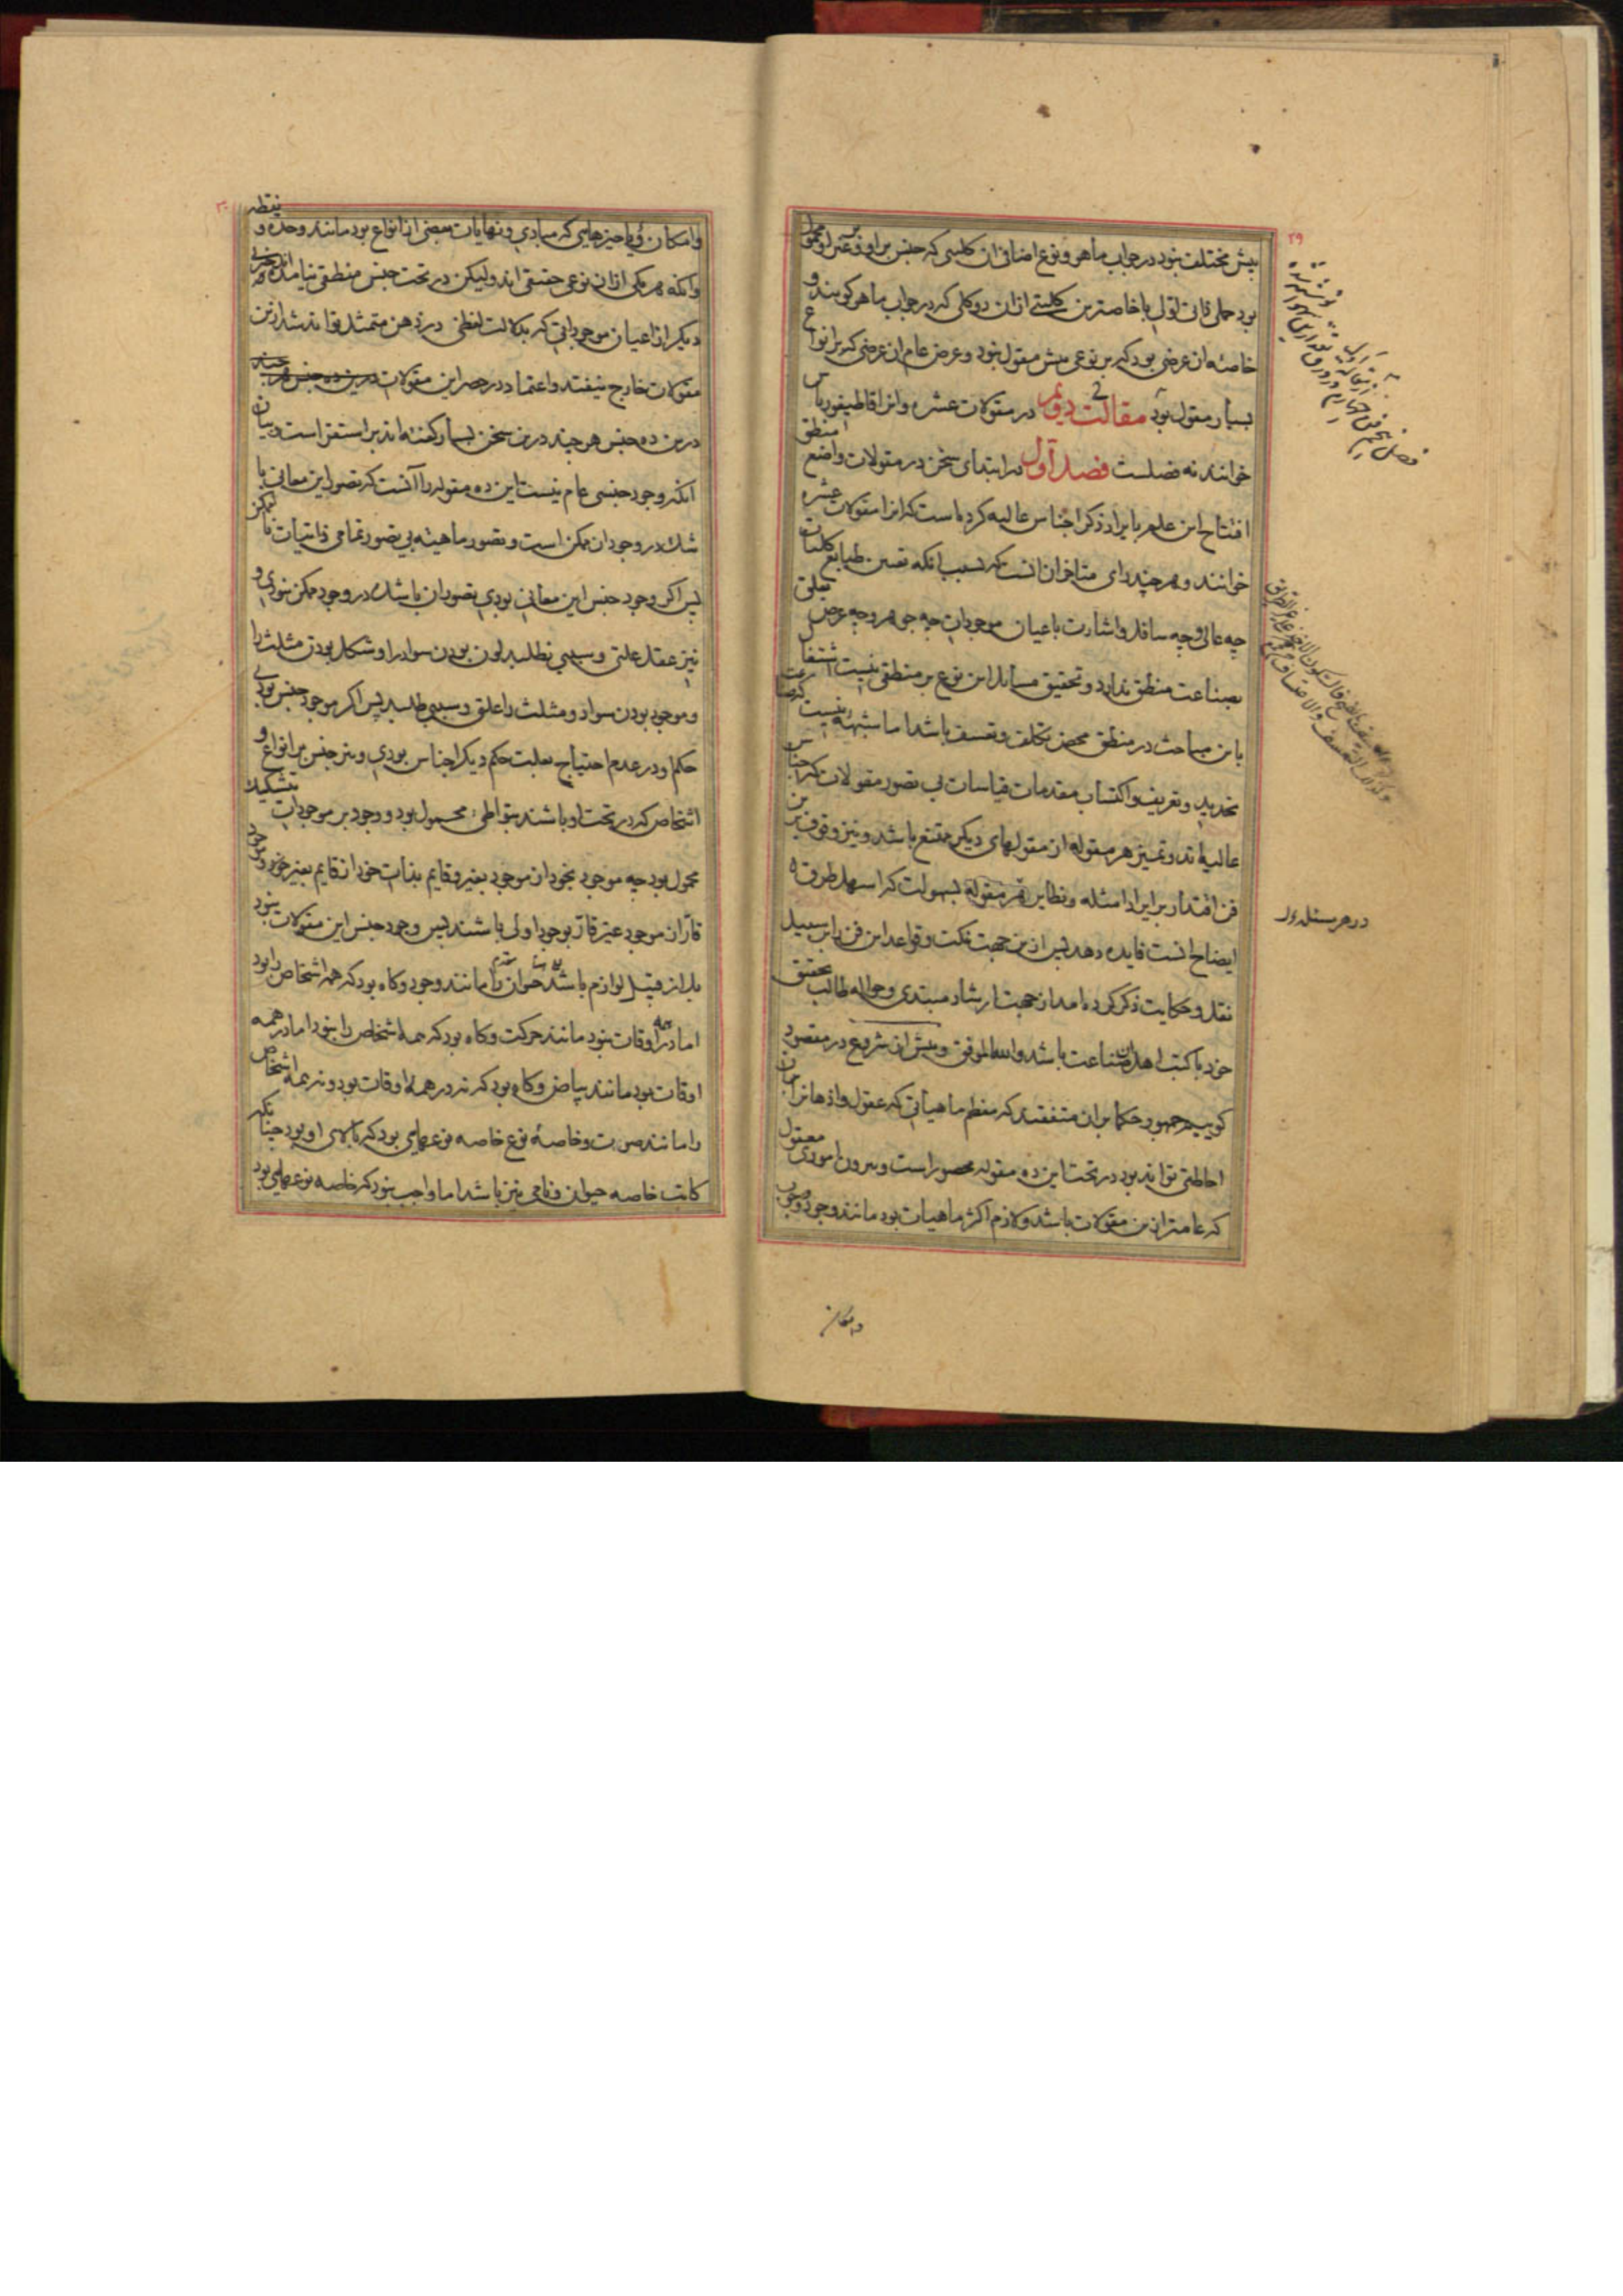 ۲۹
بیش مختلف نبود در جواب ماهو و نوع اضافی ان کلیی که جنس بر او و بر غیر او محمول
بود حملی ذاتی اولی یا خاصترین کلیتی ازان دو کلی که در جواب ماهو کویند و
خاصه ان عرضی بود که بر نوعی بیش مقول نبود و عرض عام ان عرضی که بر انواع
بسیار مقول بود مقالت دویم در مقولات عشره و انرا قاطیغوریاس
خوانند نه فصلست فصل اول در ابتدای سخن در مقولات واضع منطق
افتتاح این علم بایراد ذکر اجناس عالیه کرده است که انرا مقولات عشره
خوانند و هر چند رای متاخران انست که بسبب انکه تعیین طبایع کلیات
چه عالی و چه سافل و اشارت باعیان موجودات چه جوهر و چه عرض تعلق
بصناعت منطق ندارد و تحقیق مسایل این نوع بر منطقی نیست اشتغال
باین مباحث در منطق محض تکلف و تعسف باشد اما شبهه نیست که صناعت
تحدید و تعریف و اکتساب مقدمات قیاسات بی تصور مقولات که اجناس
عالیه اند و تمییز هر مقوله از مقولهای دیکر ممتنع باشد و نیز وقوف برین
فن اقتدار بر ایراد امثله و نظایر هر مقوله بسهولت که اسهل طرق
ایضاح انست فایده دهد پس ازین جهت نکت و قواعد این فن را بر سبیل
نقل و حکایت ذکر کرده امد از جهت ارشاد مبتدی و حواله طالب تحقیق
خود با کتب اهل ان صناعت باشد والله الموفق و پیش از شروع در مقصود
کوییم جمهور حکما بران متفقند که معظم ماهیاتی که عقول و اذهان را بران
احاطتی تواند بود در تحت این ده مقوله محصور است و بیرون اموری معقول
که عامتر ازین مقولات باشد و لازم اکثر ماهیات بود مانند وجود و وجوب
در هر مسئله
و امکان
۳۰
و امکان و یا چیزهایی که مبادی و نهایات بعضی ازانواع بود مانند وحده و نقطه
وانکه هر یکی ازان نوعی حقیقی اند ولیکن در تحت جنس منطقی نیامده اند
دیکر از اعیان موجوداتی که بدلالت لفظی در ذهن متمثل تواند شد ازین
مقولات خارج نیفتد و اعتماد در حصر این مقولات
درین ده جنس هر چند درین سخن بسیار کفته اند بر استقرا است و بیان
انکه وجود جنسی عام نیست این ده مقوله را آنست که تصور این معانی با
شک در وجود ان ممکن است و تصور ماهیته بی تصور تمامی ذاتیات نا ممکن
پس اکر وجود جنس این معانی بودی تصور ان با شک در وجود ممکن نبودی و
نیز عقل علتی و سببی نطلبد لون بودن سواد را و شکل بودن مثلث را
و موجود بودن سواد و مثلث را علتی و سببی طلبد پس اکر موجود جنس بودی
حکم او در عدم احتیاج بعلت حکم دیکر اجناس بودی و نیز جنس بر انواع و
اشخاص که در تحت او باشند بتواطی محمول بود و وجود بر موجودات بتشکیک
محمول بود چه موجود بخود از موجود بغیر و قایم بذات خود از قایم بغیر خود و موجود
قار از موجود غیر قار بوجود اولی باشند پس وجود جنس این مقولات نبود
بل از قبیل لوازم باشد حیوان را مانند وجود و کاه بود که همه اشخاص را بود
اما در همه اوقات نبود مانند حرکت و کاه بود که همه اشخاص را نبود اما در همه
اوقات بود مانند بیاض و کاه بود که نه در همه اوقات بود و نه همه اشخاص
را مانند صوت و خاصه نوع خاصه نوع عالی بود که بالای او بود چنانکه
کاتب خاصه حیوان و نامی نیز باشد اما واجب نبود که خاصه نوع عالی بود